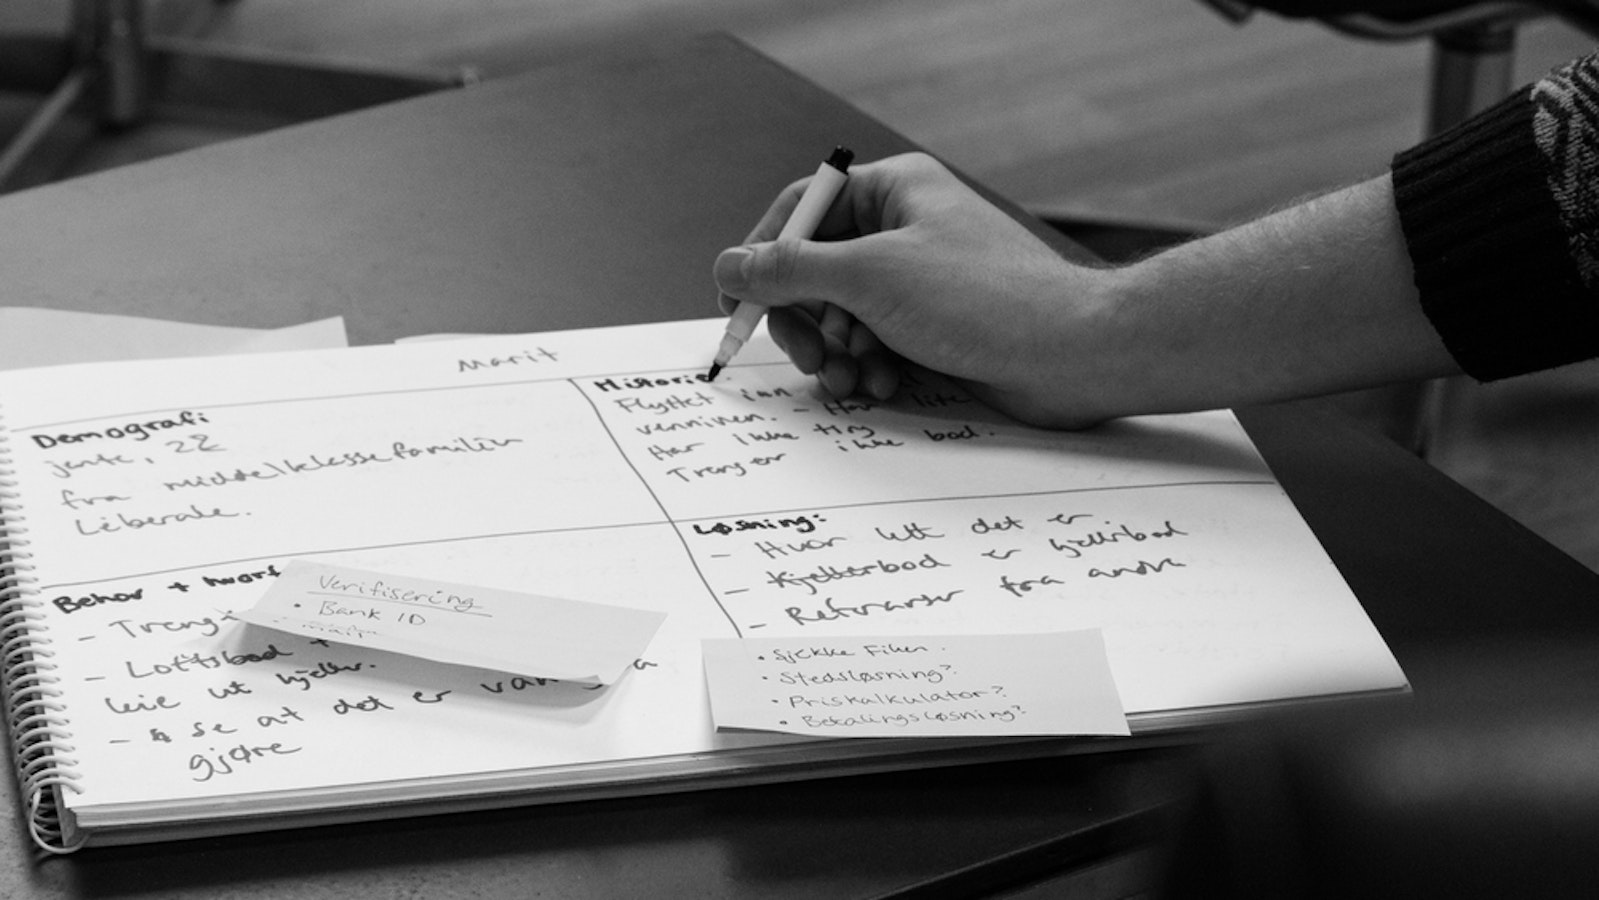 Marit
Demografi
jente, 22
fra middelklassefamilie
Liberale.
Historie:
Flyttet inn
venninen. - Har lite
Har ikke ting
Trenger ikke bod.
Behov + hvorf
- Treng
- Loftsbod +
leie ut kjeller.
- å se at det er van
gjøre
Verifisering
• Bank ID
Løsning:
- Hvor lett det er
- Kjellerbod er kjellerbod
- Referanser fra andre
• Sjekke Finn.
• Stedsløsning?
• Priskalkulator?
• Betalingsløsning?